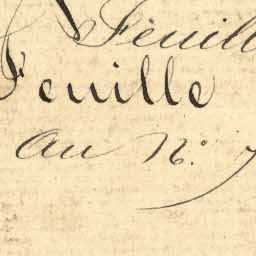 Feuill
Feuille
au N.º 7